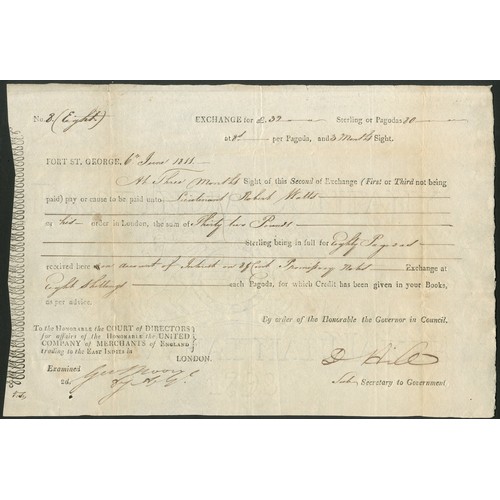 No. 8 (Eight) EXCHANGE for £.32 Sterling or Pagodas 80
at 8s per Pagoda, and 3 Months Sight.
FORT ST. GEORGE, 6th June 1811.
At Three Months Sight of this Second of Exchange (First or Third not being
paid) pay or cause to be paid unto Lieutenant Robert Watts
or his order in London, the sum of Thirty two Pounds
Sterling being in full for Eighty Pagodas
received here on account of Interest on Promissory Notes Exchange at
Eight Shillings each Pagoda, for which Credit has been given in your Books,
as per advice.
By order of the Honorable the Governor in Council.
To the HONORABLE the COURT of DIRECTORS
for affairs of the HONORABLE the UNITED
COMPANY of MERCHANTS of ENGLAND
trading to the EAST INDIES in
LONDON.
D Hill
Examined Geo Moore
2d.
Sub Secretary to Government